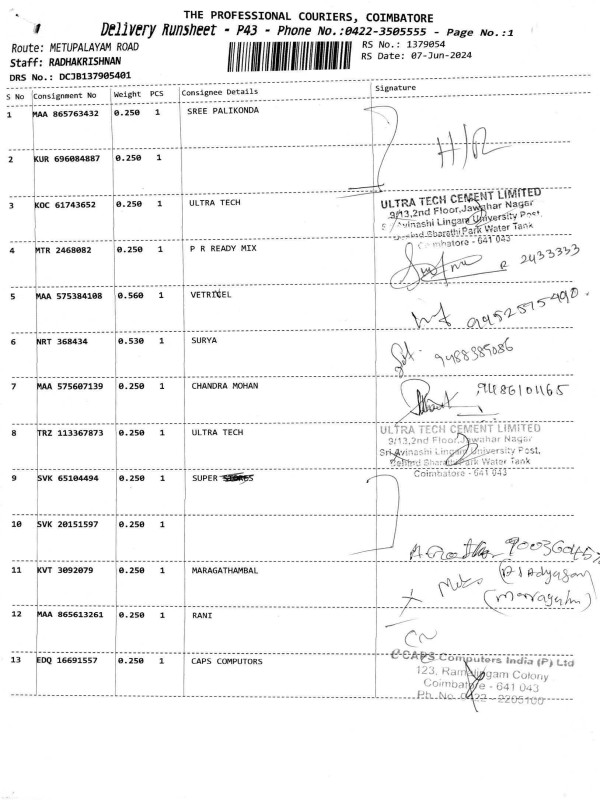 THE PROFESSIONAL COURIERS, COIMBATORE
Delivery Runsheet - P43 - Phone No.:0422-3505555 - Page No.:1
Route: METUPALAYAM ROAD
RS No.: 1379054
Staff: RADHAKRISHNAN
RS Date: 07-Jun-2024
DRS No.: DCJB137905401
S No Consignment No Weight PCS Consignee Details Signature
1 MAA 865763432 0.250 1 SREE PALIKONDA
H/R
2 KUR 696084887 0.250 1
3 KOC 61743652 0.250 1 ULTRA TECH
ULTRA TECH CEMENT LIMITED
9/13,2nd Floor,Jawahar Nagar
Avinashi Lingam University Post,
Behind Bharathi Park Water Tank
Coimbatore - 641 043
4 MTR 2468082 0.250 1 P R READY MIX
2433333
5 MAA 575384108 0.560 1 VETRIVEL
9952575490
6 NRT 368434 0.530 1 SURYA
9488389086
7 MAA 575607139 0.250 1 CHANDRA MOHAN
9486101165
8 TRZ 113367873 0.250 1 ULTRA TECH
ULTRA TECH CEMENT LIMITED
9/13,2nd Floor,Jawahar Nagar
Sri Avinashi Lingam University Post,
Behind Bharathi Park Water Tank
Coimbatore - 641 043
9 SVK 65104494 0.250 1 SUPER
10 SVK 20151597 0.250 1
11 KVT 3092079 0.250 1 MARAGATHAMBAL
12 MAA 865613261 0.250 1 RANI
13 EDQ 16691557 0.250 1 CAPS COMPUTORS
CAPS Computers India (P) Ltd
123, Ramalingam Colony
Coimbatore - 641 043
Ph. No. 0422 - 2205100